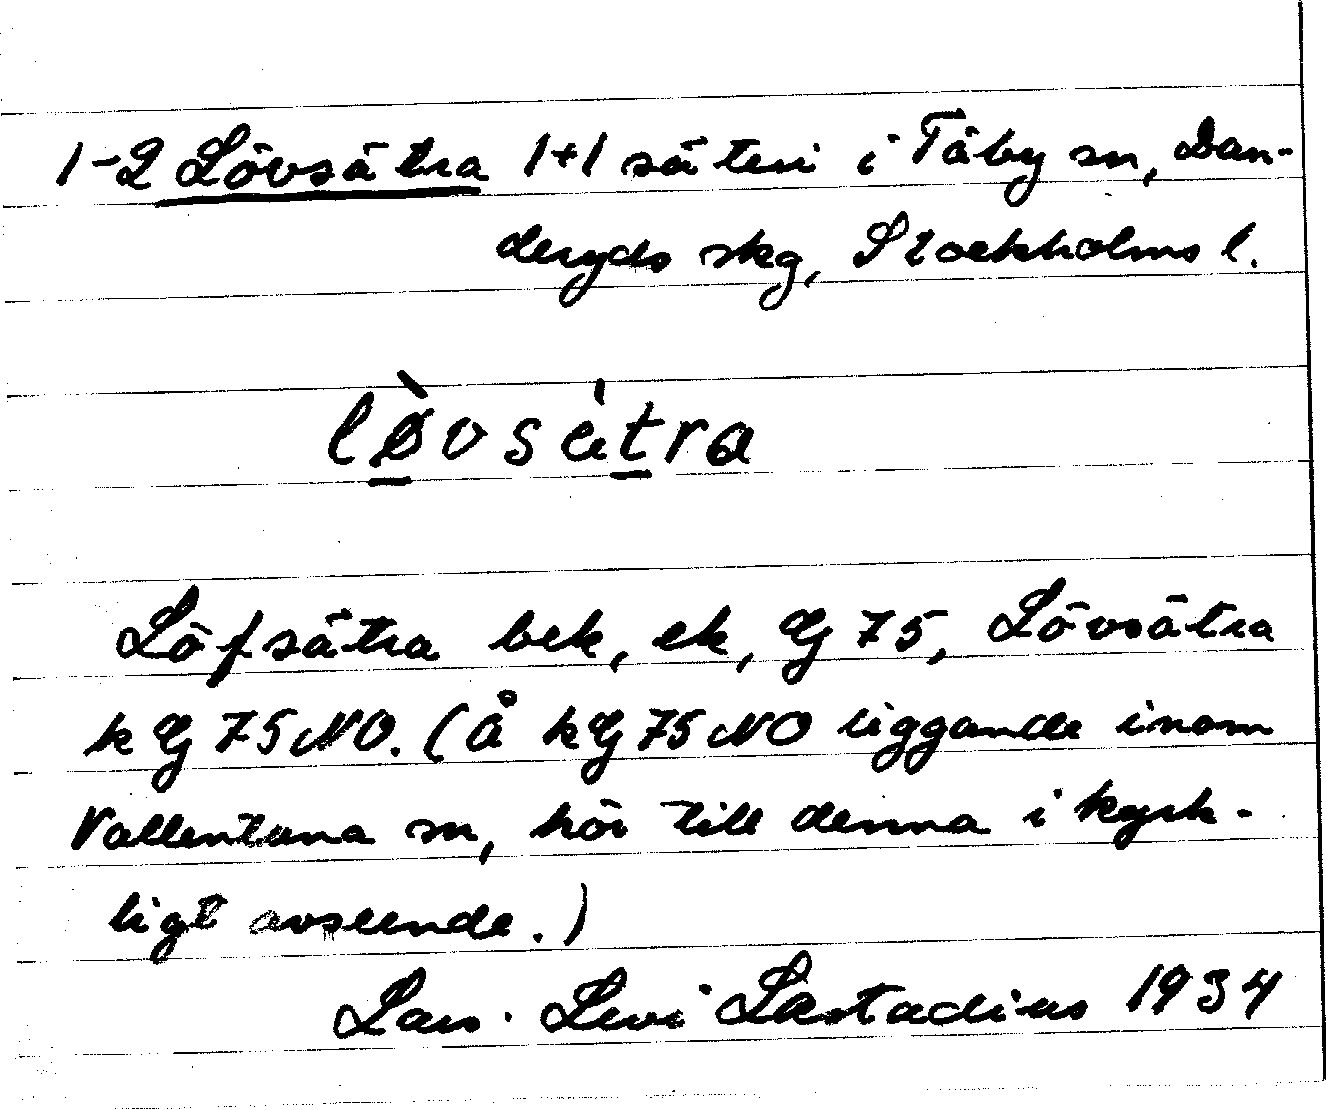 1-2 Lövsätra 1+1 säteri i Täby sn, Dan-
deryds skg, Stockholms l.
lø̀vsàtra
Löfsätra bek, ek, Gj 75, Lövsätra
k Gj 75 NO. (Å k Gj 75 NO liggande inom
Vallentuna sn, hör till denna i kyrk-
ligt avseende.)
Lars-Levi Læstadius 1934